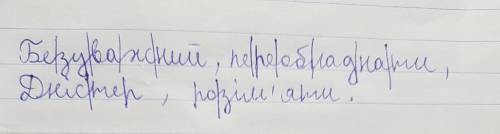 Безуважний, переобладнати,
Дністер, розім'яти.